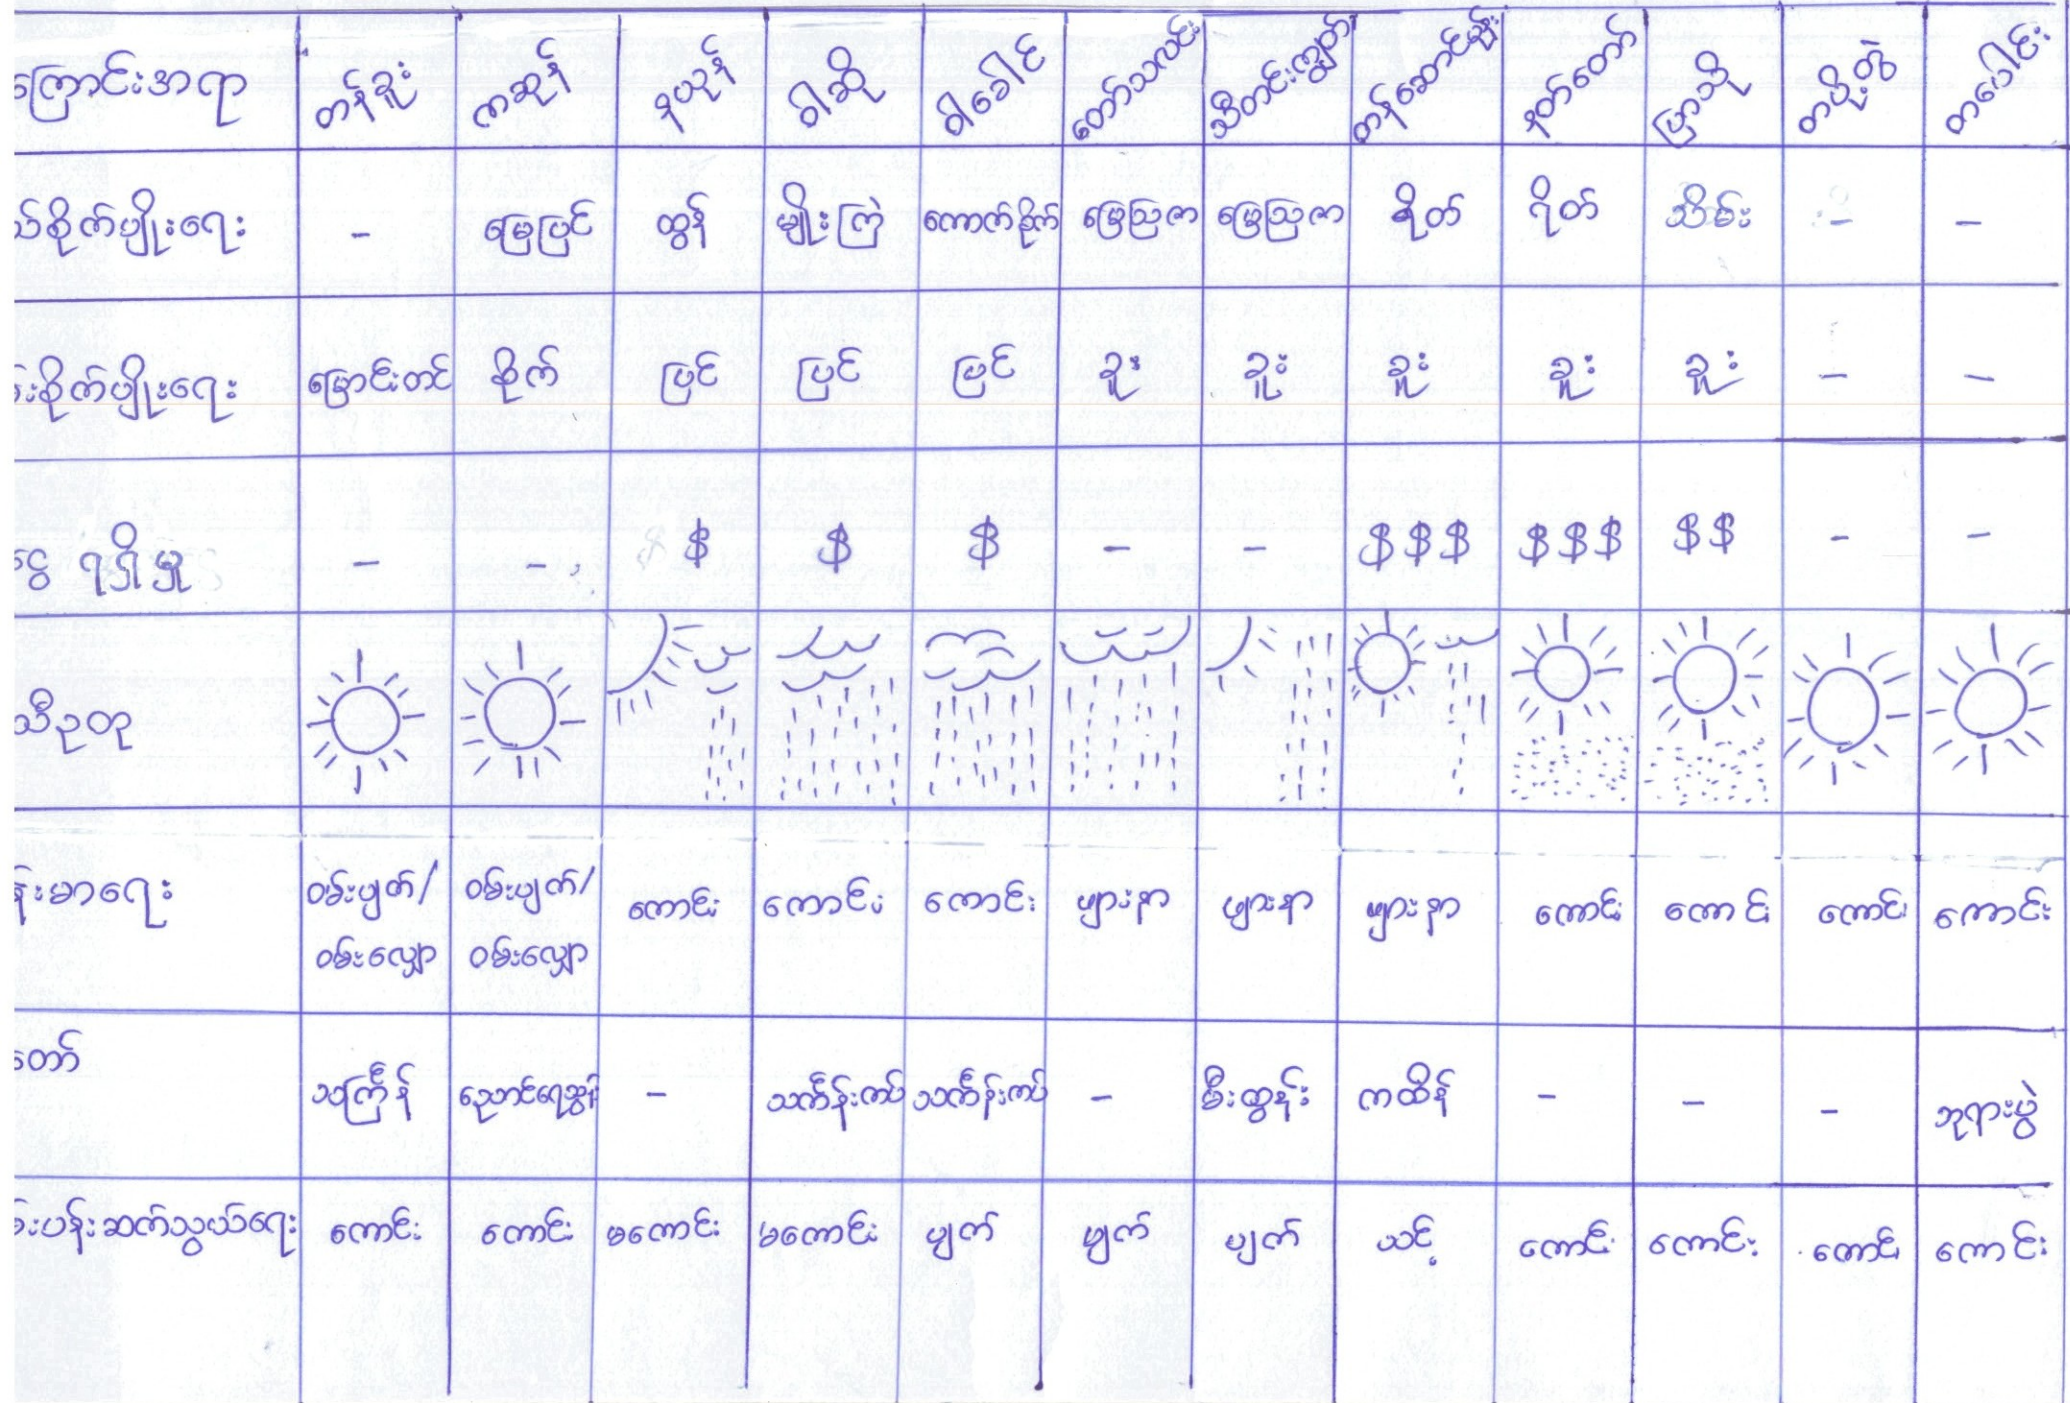 ကြောင်းအရာ တန်ခူး ကဆုန် နယုန် ဝါဆို ဝါခေါင် တော်သလင်း သီတင်းကျွတ် တန်ဆောင်မုန်း နတ်တော် ပြာသို တပို့တွဲ တပေါင်း
ယ်စိုက်ပျိုးရေး - မြေပြင် ထွန် မျိုးကြဲ ကောက်စိုက် မြေသြဇာ မြေသြဇာ ရိတ် ရိတ် သိမ်း - -
စိုက်ပျိုးရေး မြောင်းတင် စိုက် ပြင် ပြင် ပြင် ခူး ခူး ခူး ခူး ခူး - -
ငွေ ရရှိမှု - - $ $ $ - - $$$ $$$ $$ - -
သီဥတု
န်းမာရေး ဝမ်းပျက်/ ဝမ်းပျက်/ ကောင်း ကောင်း ကောင်း ဖျားနာ ဖျားနာ ဖျားနာ ကောင်း ကောင်း ကောင်း ကောင်း
ဝမ်းလျှော ဝမ်းလျှော
တော် သင်္ကြန် ညောင်ရေသွန်း - သင်္ကန်းကပ် သင်္ကန်းကပ် - မီးထွန်း ကထိန် - - - ဘုရားပွဲ
မ်းပန်းဆက်သွယ်ရေး ကောင်း ကောင်း မကောင်း မကောင်း ပျက် ပျက် ပျက် သင့် ကောင်း ကောင်း ကောင်း ကောင်း